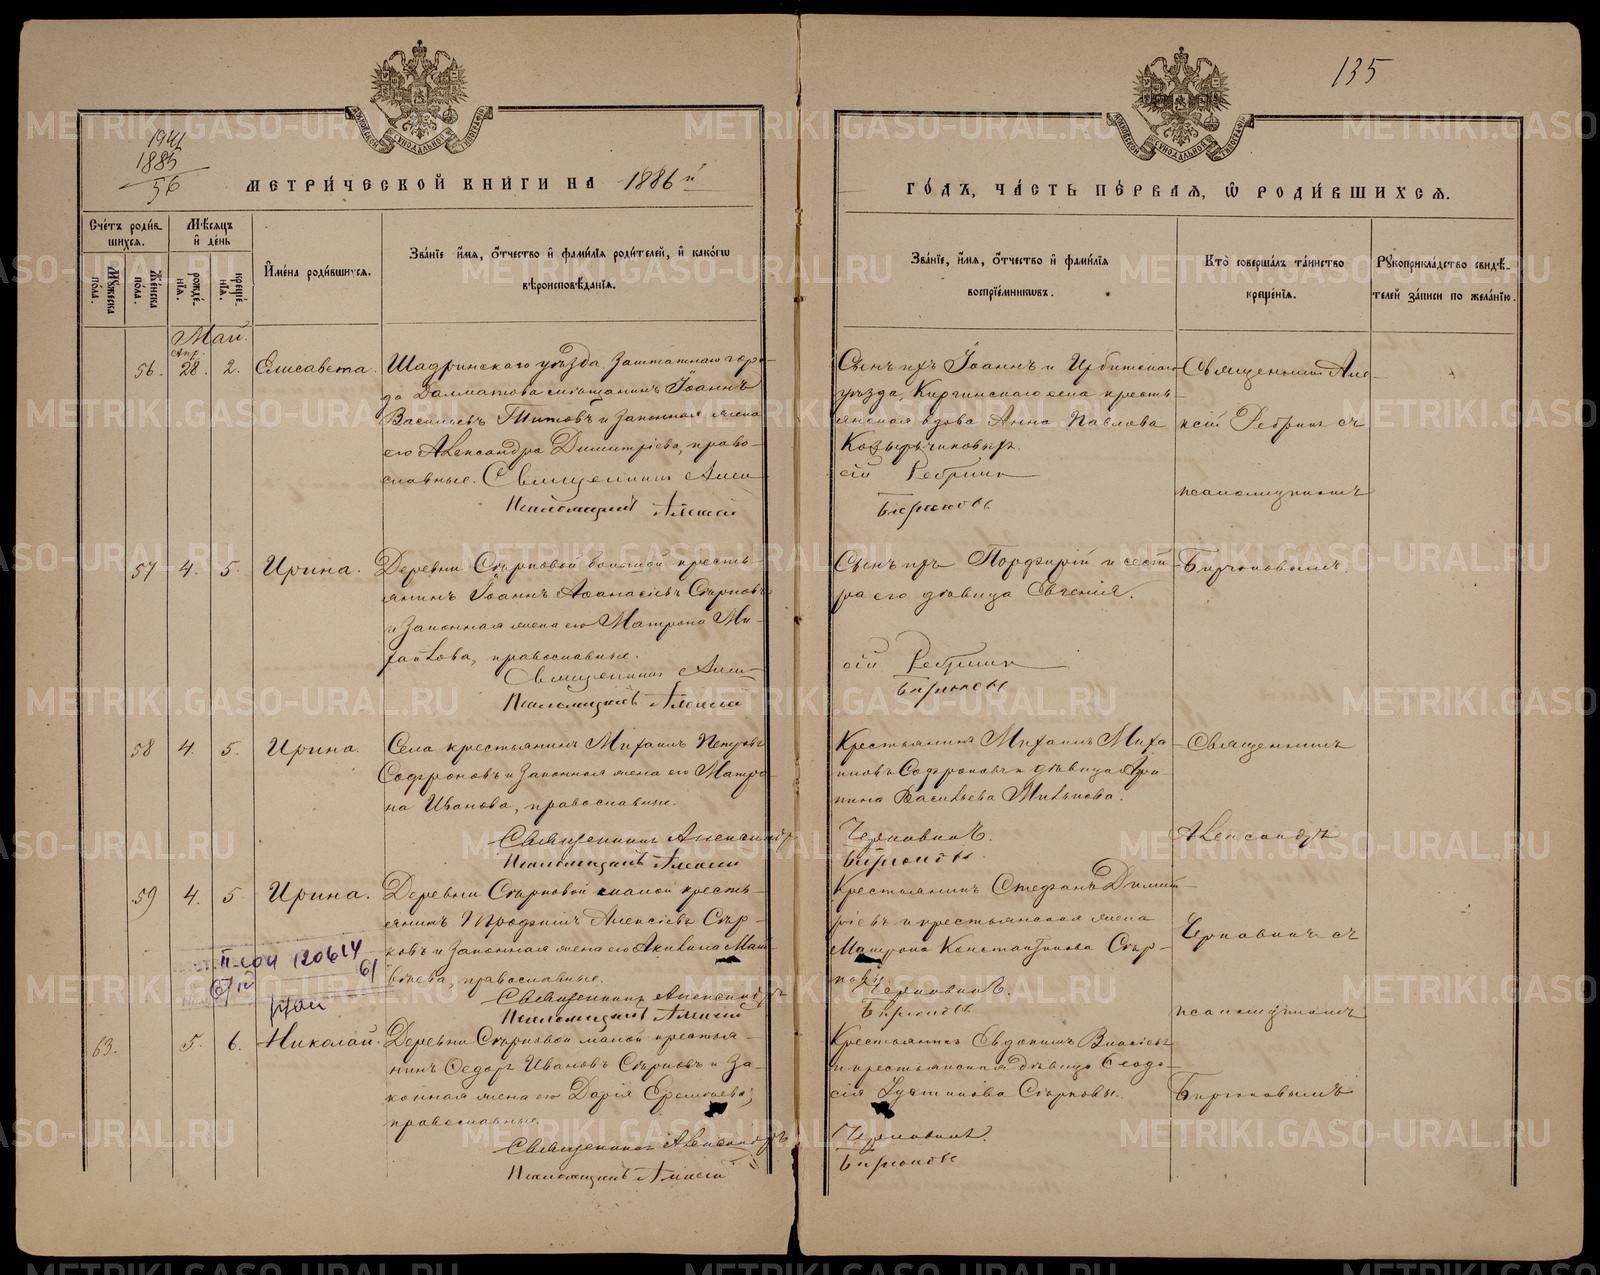 135
1941
1885
56
МЕТРИ́ЧЕСКОЙ КНИ́ГИ НА 1886й
ГО́ДЪ, ЧА́СТЬ ПЕ́РВАЯ, Ѡ РОДИ́ВШИХСЯ.
Сче́тъ роди́вшихся.
Мѣ́сяцъ и де́нь
Му́жеска по́ла.
Же́нска по́ла.
рожде́нїя.
креще́нїя.
И҆́мена роди́вшихся.
Зва́нїе и҆́мя, о҆́тчество и҆ фами́лїя роди́телей, и҆ како́гѡ
вѣроисповѣ́данїя.
Зва́нїе, и҆́мя, о҆́тчество и҆ фами́лїя
воспрїе́мниковъ.
Кто̀ соверша́лъ та́инство
креще́нїя.
Рꙋкоприкла́дство свидѣ́-
телей за́писи по жела́нїю.
Май.
Апр.
56. 28. 2. Елисавета.
Шадринскаго уѣзда, заштатнаго горо-
да Далматова мѣщанинъ Іоаннъ
Васильевъ Титовъ и законная жена
его Александра Димитріева, право-
славные. Священникъ Алек-
Псаломщикъ Алексѣй
Сынъ ихъ Іоаннъ и Ирбитскаго
уѣзда, Киргинскаго села кресть-
янская вдова Анна Павлова
сій Ребринъ
Бирюковъ
Священникъ Алек-
сій Ребринъ съ
псаломщикомъ
57 4. 5. Ирина.
Деревни Сѣрковой большой кресть-
янинъ Іоаннъ Аѳанасіевъ Сѣрковъ
и законная жена его Матрона Ми-
хайлова, православные.
Священникъ Алек-
Псаломщикъ Алексѣй
Сынъ ихъ Порфирій и сест-
ра его дѣвица Евгенія.
сій Ребринъ
Бирюковъ
Бирюковымъ.
58 4. 5. Ирина.
Села крестьянинъ Михаилъ Петровъ
Софроновъ и законная жена его Матро-
на Иванова, православные.
Священникъ Александръ
Псаломщикъ Алексѣй
Крестьянинъ Михаилъ Миха-
иловъ Софроновъ и дѣвица Агри-
пина Васильева Милькова.
Черновинъ.
Бирюковъ.
Священникъ
Александръ
59 4. 5. Ирина.
Деревни Сѣрковой малой кресть-
янинъ Трофимъ Алексіевъ Сѣр-
ковъ и законная жена его Акилина Мат-
вѣева, православные.
Священникъ Александръ
Псаломщикъ Алексѣй
Крестьянинъ Стефанъ Димит-
ріевъ и крестьянская жена
Матрона Константинова Сѣр-
ковы.
Черновинъ.
Бирюковъ
Черновинъ съ
псаломщикомъ
120614
63. 5. 6. Николай.
Деревни Сѣрковой малой крестья-
нинъ Ѳедоръ Ивановъ Сѣрковъ и за-
конная жена его Дарія Ермолаева,
православные.
Священникъ Александръ
Псаломщикъ Алексѣй
Крестьянинъ Евдокимъ Власіевъ
и крестьянская дѣвица Ѳеодо-
сія Іустинова Сѣрковы.
Черновинъ.
Бирюковъ
Бирюковымъ
METRIKI.GASO-URAL.RU